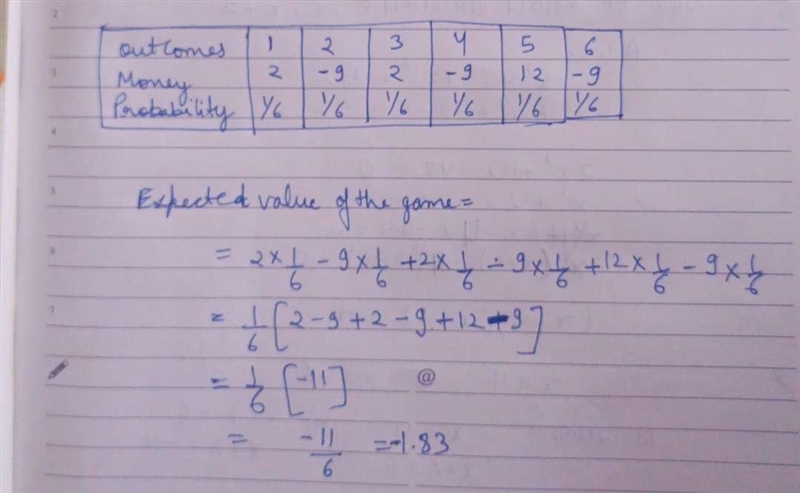 Outcomes 1 2 3 4 5 6
Money 2 -9 2 -9 12 -9
Probability 1/6 1/6 1/6 1/6 1/6 1/6
Expected value of the game =
= 2 × 1/6 - 9 × 1/6 + 2 × 1/6 - 9 × 1/6 + 12 × 1/6 - 9 × 1/6
= 1/6 [2 - 9 + 2 - 9 + 12 - 9]
= 1/6 [-11] @
= -11/6 = -1.83